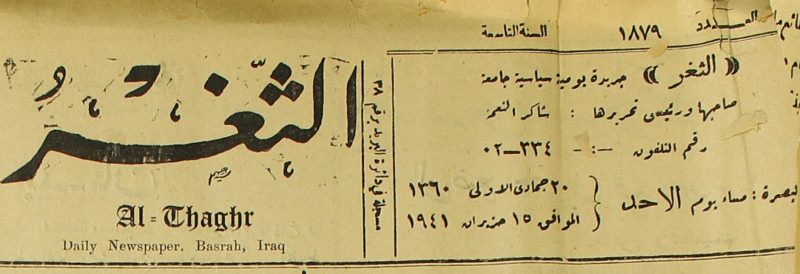 العدد ١٨٧٩ السنة التاسعة
« الثغر » جريدة يومية سياسية جامعة
صاحبها ورئيس تحريرها : شاكر النعمة
رقم التلفون —:— ٣٣٤—٠٢
البصرة : مساء يوم الاحد
٢٠ جمادى الاولى ١٣٦٠
الموافق ١٥ حزيران ١٩٤١
مسجلة في دائرة البريد برقم ٣٨
الثغر
Al-Thaghr
Daily Newspaper. Basrah, Iraq